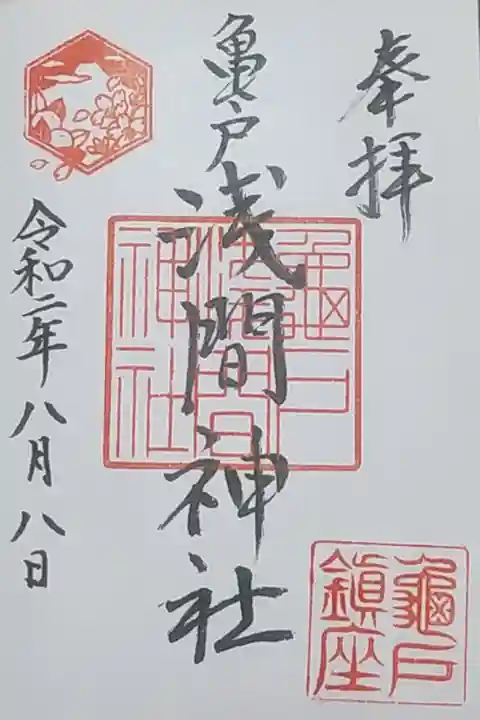 奉拝
亀戸浅間神社
龜戸浅間神社
龜戸鎮座
令和二年八月八日